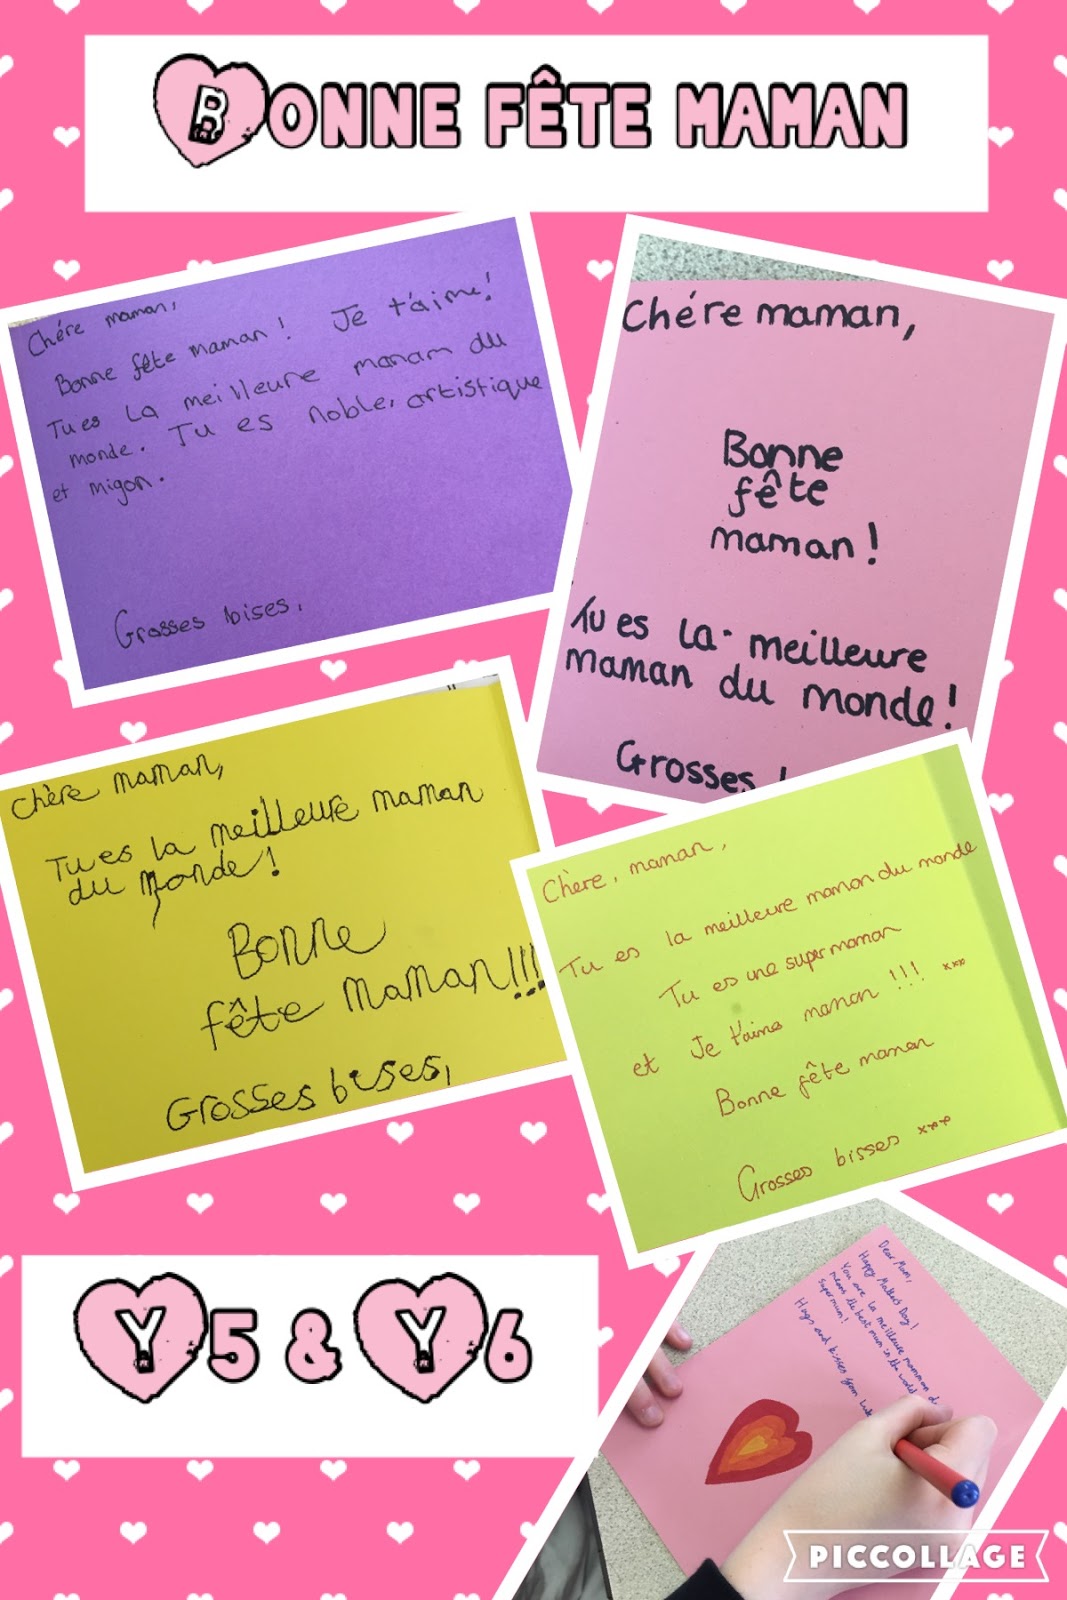 BONNE FÊTE MAMAN
Chére maman,
Bonne fête maman! Je t'aime!
Tu es La meilleure manam du
monde. Tu es noble, artistique
et migon.
Grosses bises,
Chére maman,
Bonne
fête
maman!
Tu es La meilleure
maman du monde!
Grosses
Chère maman,
Tu es la meilleure maman
du monde!
Bonne
fête maman!!!
Grosses bises,
Chère, maman,
Tu es la meilleure maman du monde
Tu es une super maman
et Je t'aime maman!!! xxx
Bonne fête maman
Grosses bisses xxx
Y5 & Y6
Dear Mum,
Happy Mother's Day!
You are la meilleure mamman d
means the best mum in the world
supermum!
Hugs and kisses from
PICCOLLAGE